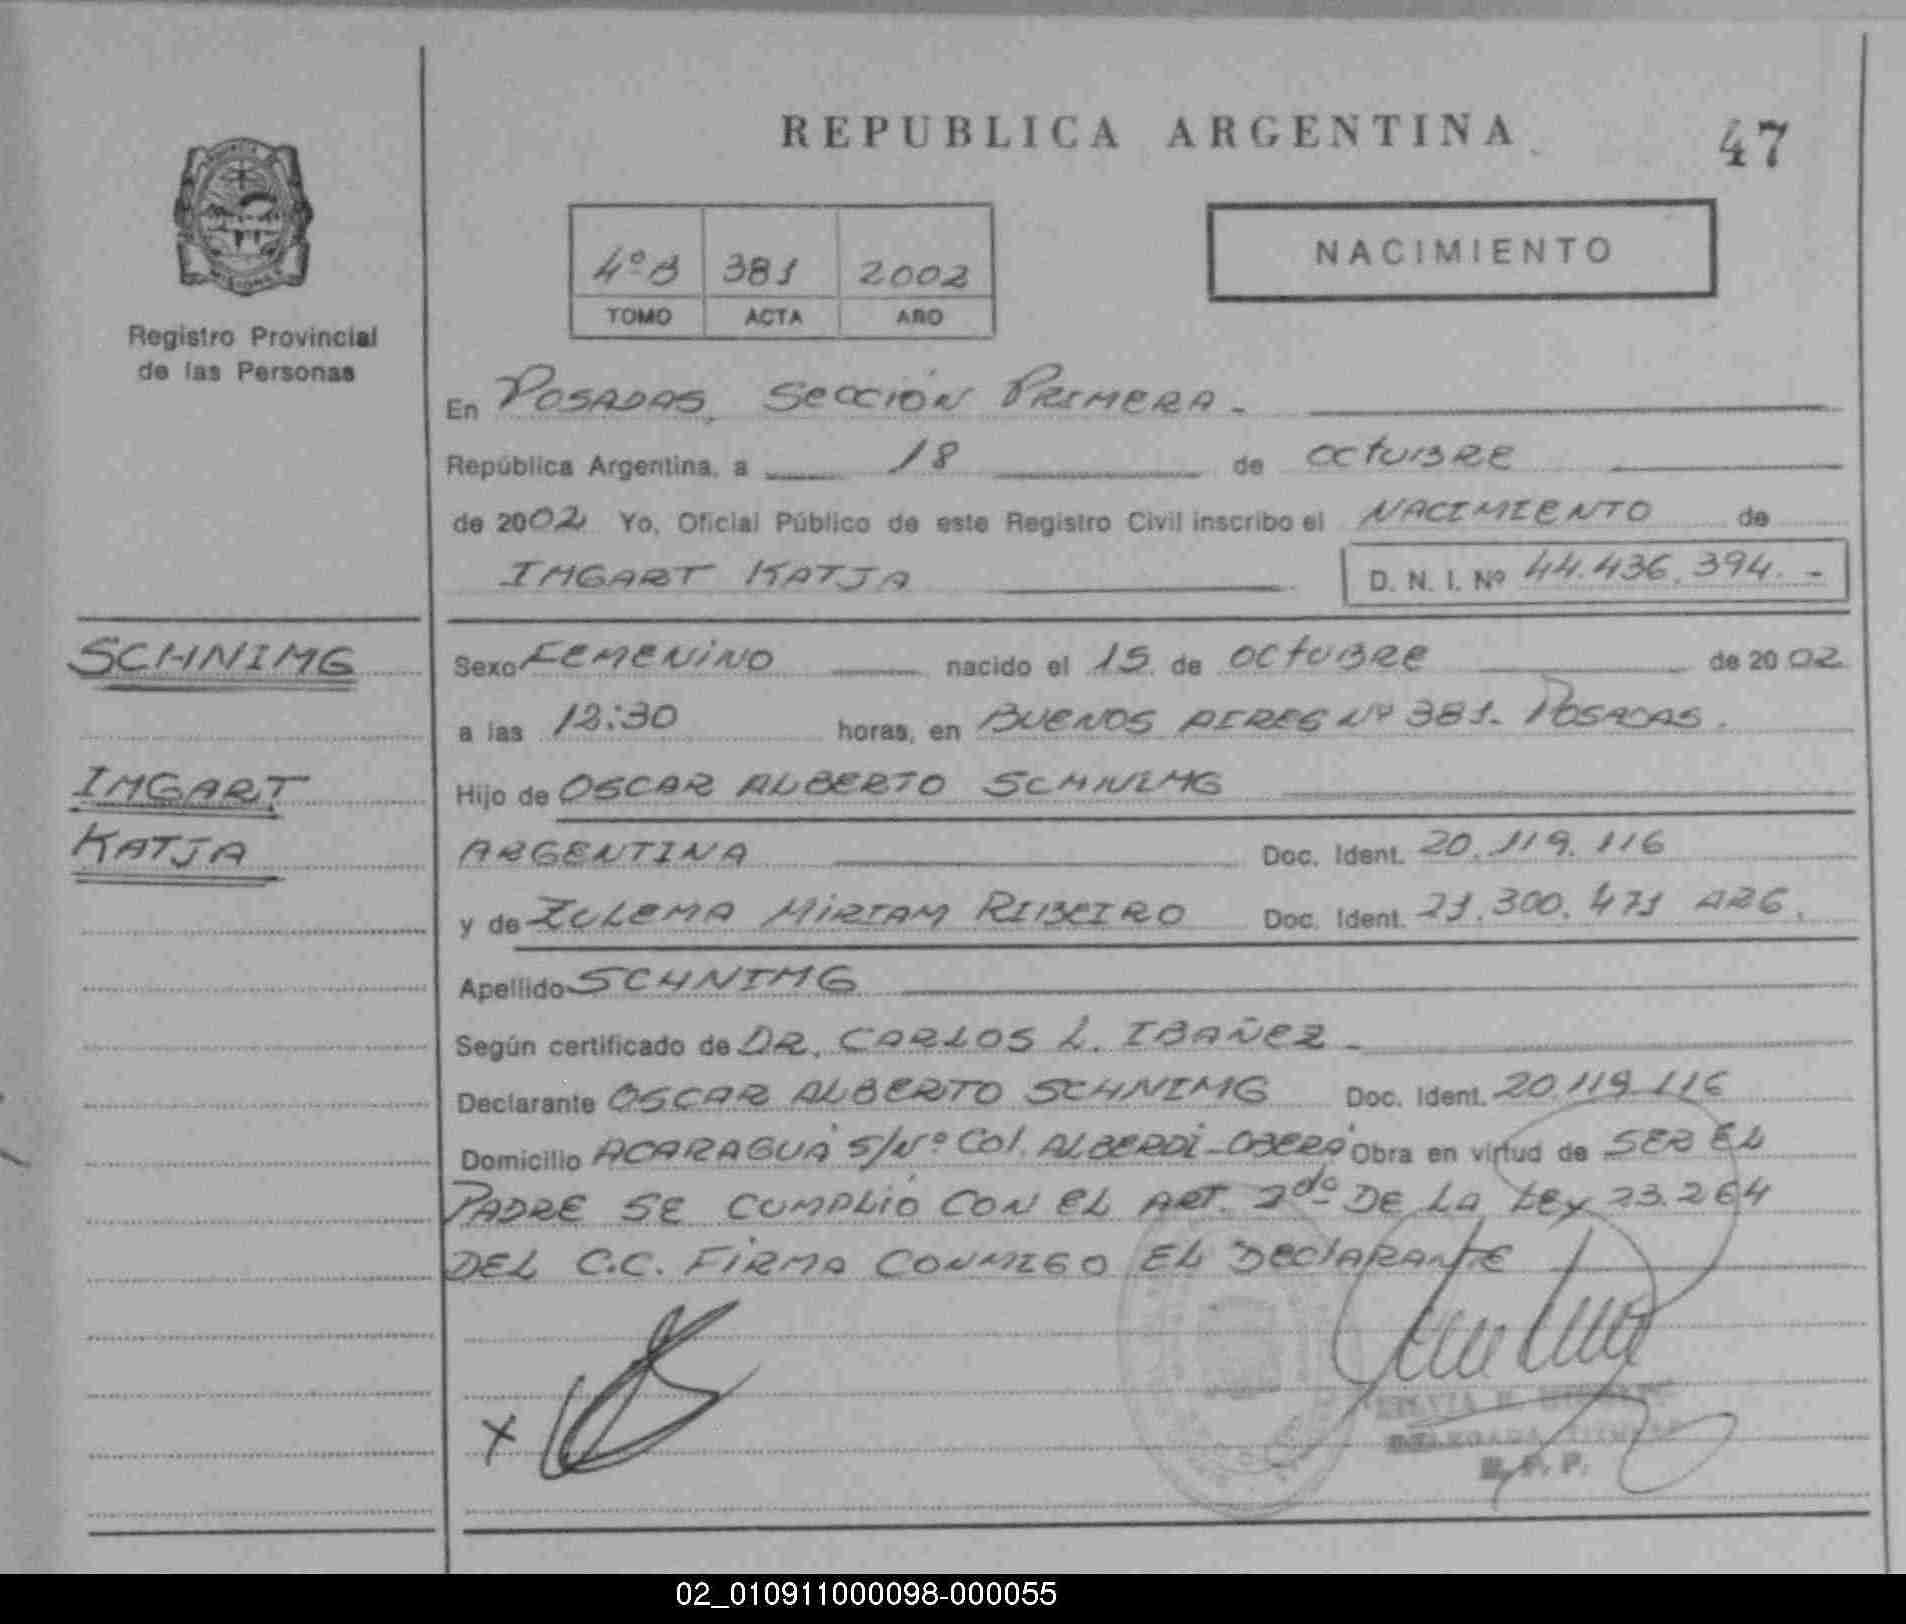 REPUBLICA ARGENTINA
47
NACIMIENTO
4º B 381 2002
TOMO ACTA AÑO
Registro Provincial
de las Personas
En POSADAS, SECCIÓN PRIMERA -
República Argentina, a 18 de OCTUBRE
de 2002 Yo, Oficial Público de este Registro Civil inscribo el NACIMIENTO de
IMGART KATJA D. N. I. Nº 44.436.394.-
SCHNIMG
IMGART
KATJA
Sexo FEMENINO nacido el 15 de OCTUBRE de 2002
a las 12:30 horas, en BUENOS AIRES Nº 381. POSADAS.
Hijo de OSCAR ALBERTO SCHNIMG
ARGENTINA Doc. Ident. 20.119.116
y de ZULEMA MIRIAM RIBEIRO Doc. Ident. 21.300.471 ARG.
Apellido SCHNIMG
Según certificado de DR. CARLOS L. IBAÑEZ -
Declarante OSCAR ALBERTO SCHNIMG Doc. Ident. 20.119.116
Domicilio ACARAGUÁ S/Nº COL. ALBERDI - OBERÁ Obra en virtud de SER EL
PADRE SE CUMPLIÓ CON EL ART. 2do DE LA LEY 23.264
DEL C.C. FIRMA CONMIGO EL DECLARANTE
X
02_010911000098-000055